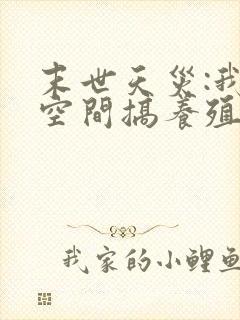 末世天災:我
空間搞養殖
我家的小鯉魚